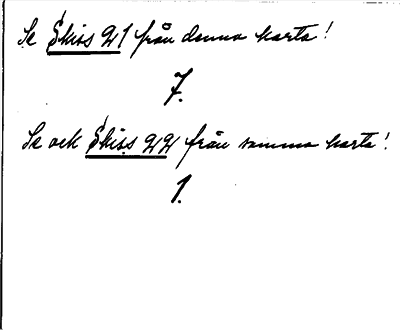 Se Skiss 21 från denna karta!
7.
Se ock Skiss 22 från samma karta!
1.